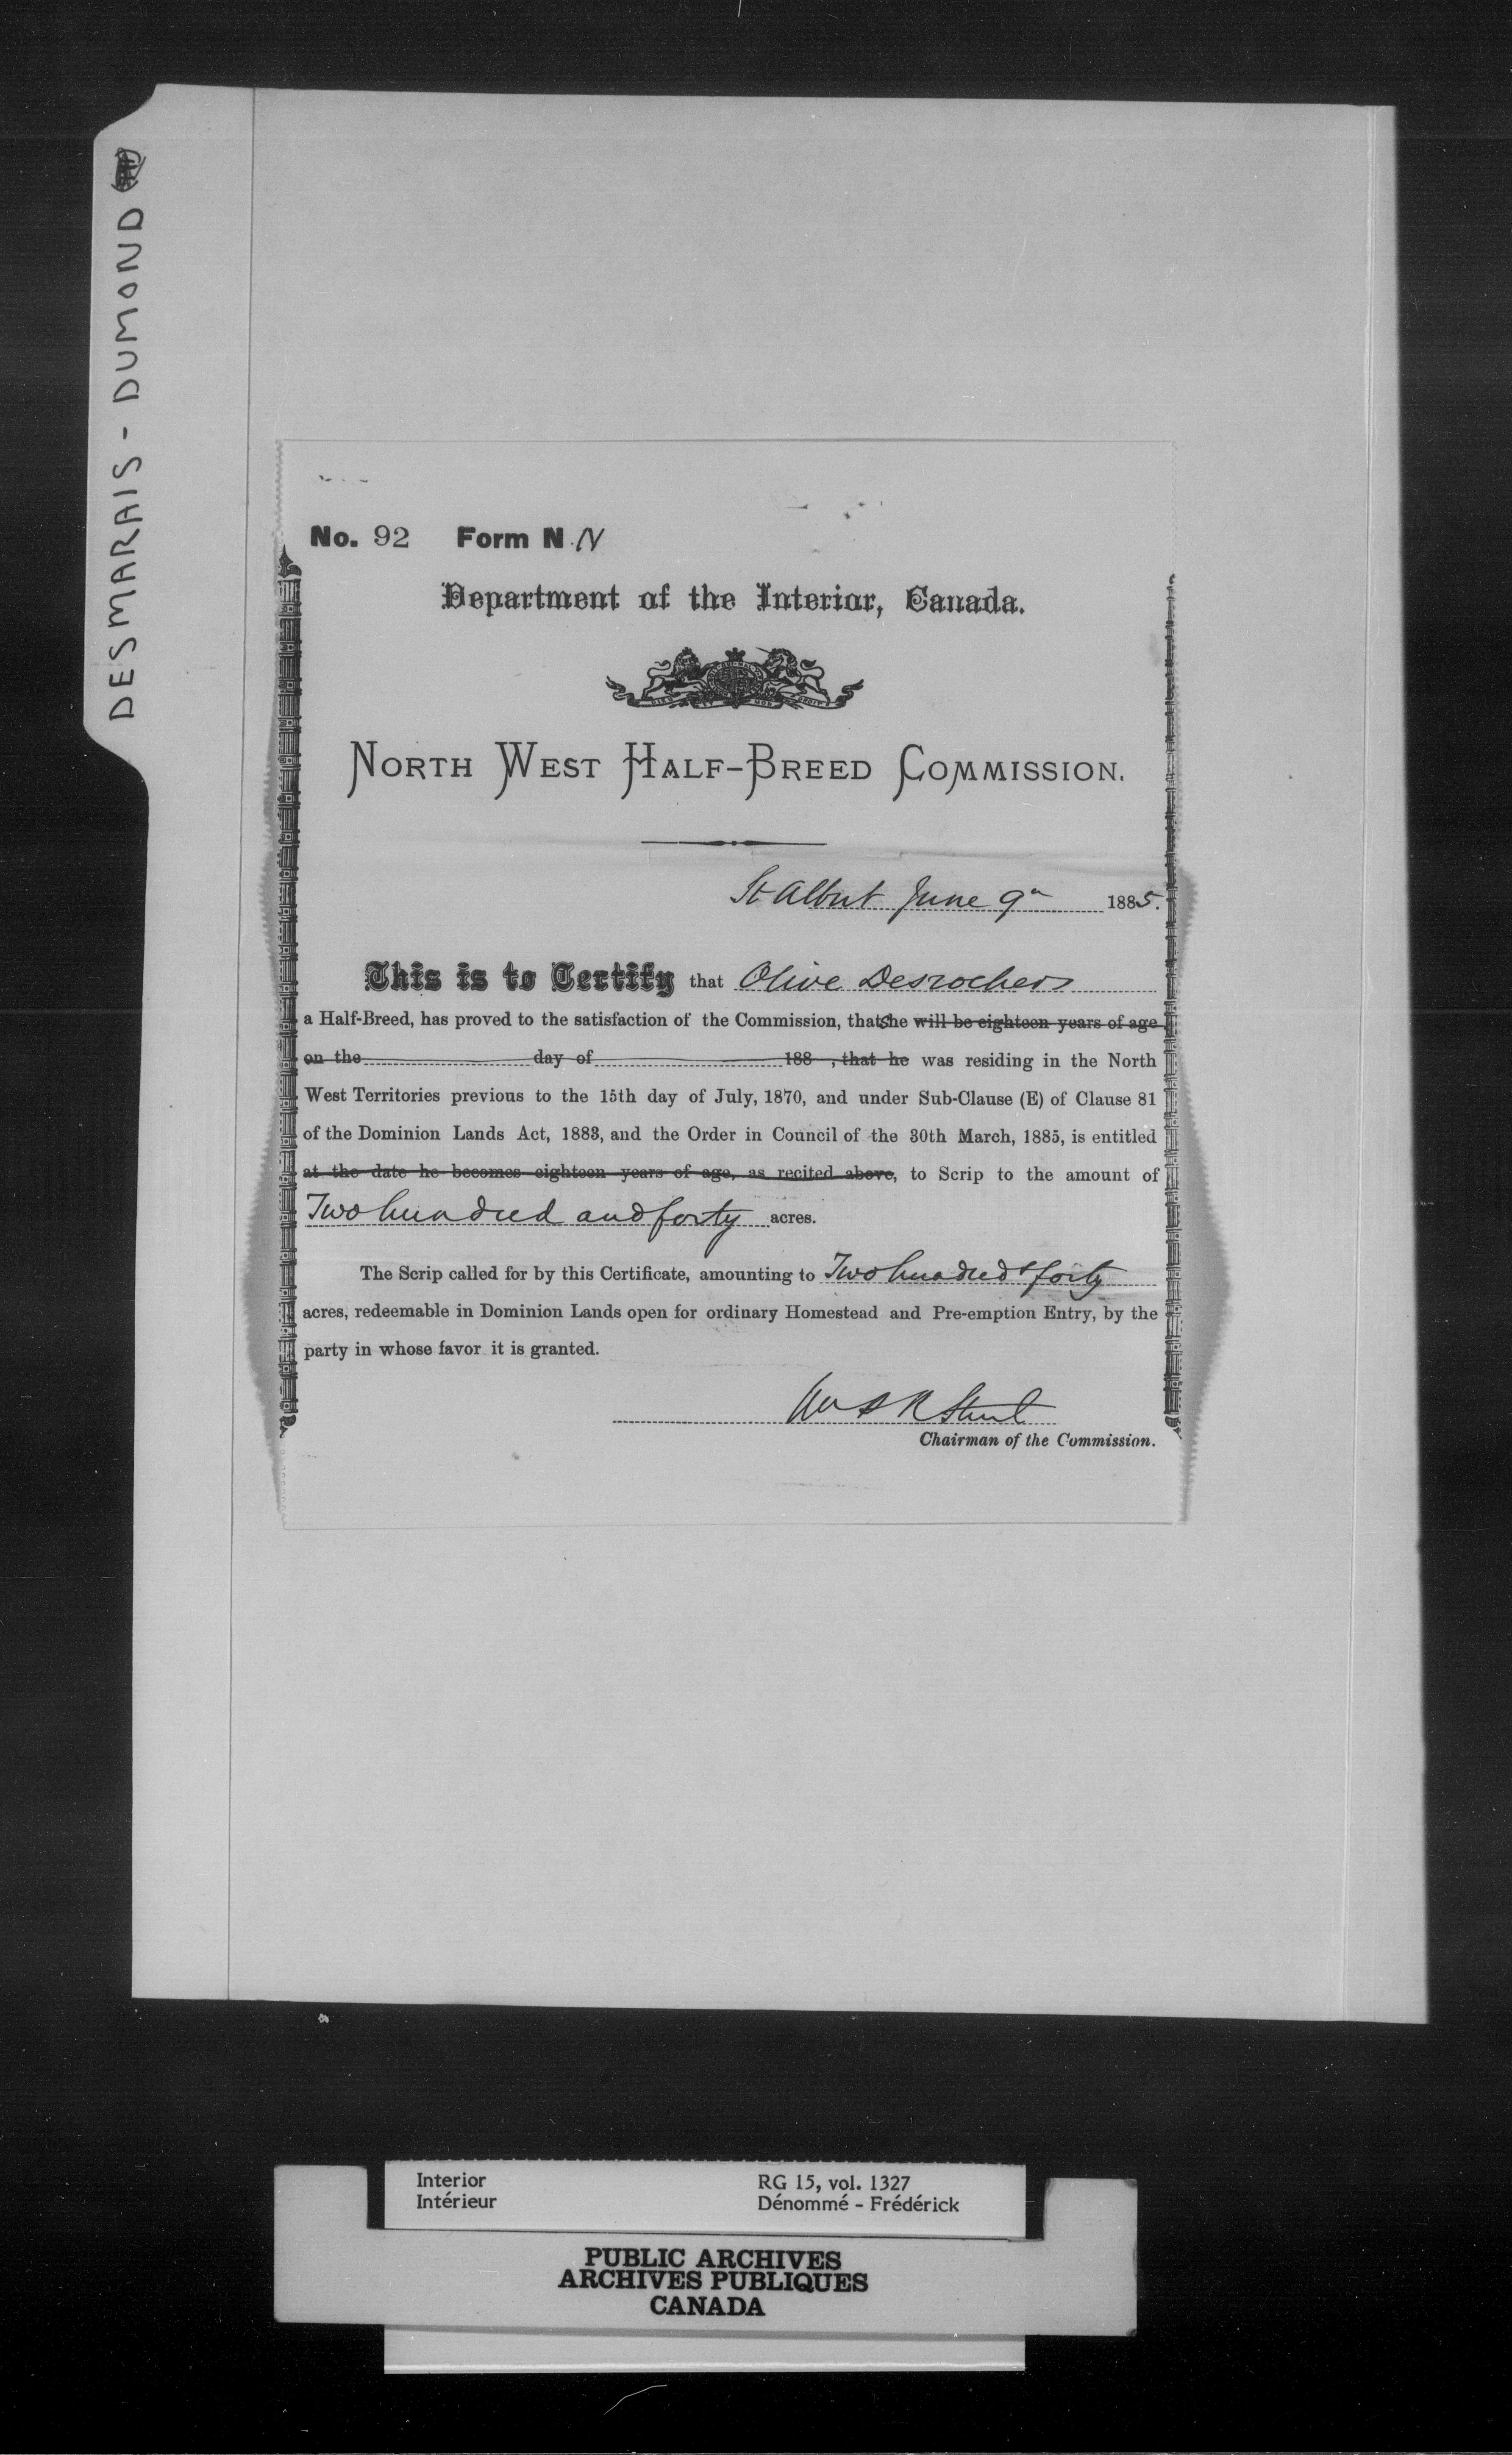 DESMARAIS - DUMOND
No. 92 Form N. N
Department of the Interior, Canada.
NORTH WEST HALF-BREED COMMISSION.
St Albert June 9th 1885.
This is to Certify that Olive Desrochers
a Half-Breed, has proved to the satisfaction of the Commission, that She will be eighteen years of age
on the day of 188 , that he was residing in the North
West Territories previous to the 15th day of July, 1870, and under Sub-Clause (E) of Clause 81
of the Dominion Lands Act, 1883, and the Order in Council of the 30th March, 1885, is entitled
at the date he becomes eighteen years of age, as recited above, to Scrip to the amount of
Two hundred and forty acres.
The Scrip called for by this Certificate, amounting to Two hundred & forty
acres, redeemable in Dominion Lands open for ordinary Homestead and Pre-emption Entry, by the
party in whose favor it is granted.
Chairman of the Commission.
Interior RG 15, vol. 1327
Intérieur Dénommé - Frédérick
PUBLIC ARCHIVES
ARCHIVES PUBLIQUES
CANADA